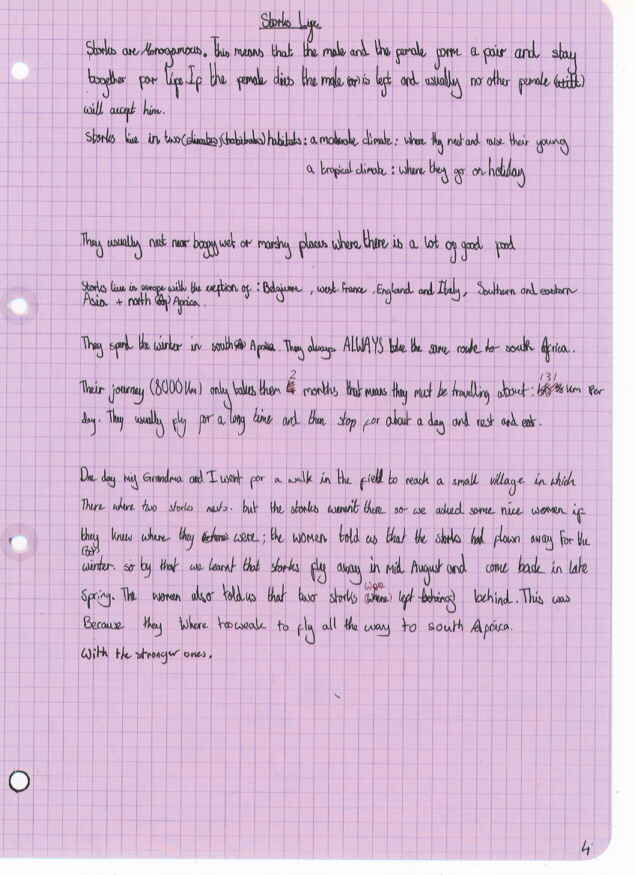 Storks Life
Storks are Monogamous. This means that the male and the female form a pair and stay
together for life. If the female dies the male is left and usually no other female
will accept him.
Storks live in two (climates) (habitats) habitats: a moderate climate: where they nest and raise their young
a tropical climate: where they go on holiday
They usually nest near boggy wet or marshy places where there is a lot of good food
Storks live in europe with the exeption of: Belgium, west France. England and Italy, Southern and eastern
Asia + north Africa.
They spend the winter in south Africa. They always ALWAYS take the same route to south Africa.
Their journey (8000 km) only takes them 2 months that means they must be travelling about 131 km per
day. They usually fly for a long time and then stop for about a day and rest and eat.
One day my Grandma and I went for a walk in the field to reach a small village in which
There where two storks nests. but the storks weren't there so we asked some nice women if
they knew where they were; the women told as that the storks had flown away for the
winter. so by that we learnt that storks fly away in mid August and come back in late
Spring. The women also told us that two storks were left behind. This was
Because they where too weak to fly all the way to south Africa.
With the stronger ones.
4